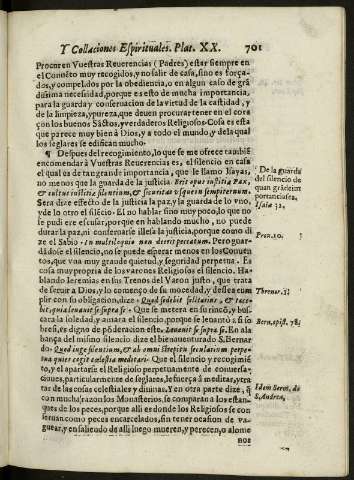 Y Collaciones Espirituales. Plat. XX. 701
Procuren Vuestras Reuerencias (Padres) estar siempre en
el Conuẽto muy recogidos, y no salir de casa, sino es força-
dos, y compelidos por la obediencia, o en algun caso de grã
dissima necessidad, porque es esto de mucha importancia,
para la guarda y conseruacion de la virtud de la castidad, y
de la limpieza, y pureza, que deuen procurar tener en el cora
con los buenos Sãctos, y verdaderos Religiosos. Cosa es esta
que parece muy bien á Dios, y a todo el mundo, y de la qual
los seglares se edifican mucho.
¶ Despues del recogimiento, lo que se me ofrece tambiẽ
encomendar á Vuestras Reuerencias es, el silencio en casa
el qual es de tan grande importancia, que le llamo Isayas,
no menos que la guarda de la justicia. Erit opus iustitiæ Pax,
& cultus iustitiæ silentium, & securitas vsque in sempiternum.
Sera dize effecto de la justicia la paz, y la guarda de lo vno,
y de lo otro el silẽcio. El no hablar sino muy poco, lo que no
se pudiere escusar, porque en hablando mucho, no puede
durar la paz, ni conseruarse illesa la justicia, porque como di
ze el Sabio. In multiloquio non deerit peccatum. Pero guar-
dãdose el silencio, no se puede esperar menos en los Conuen
tos, que vna muy grande quietud, y seguridad perpetua. Es
cosa muy propria de los varones Religiosos el silencio. Ha-
blando Ieremias en sus Trenos del Varon justo, que trata
de seruir a Dios, y lo començo de su mocedad, y dessea cum
plir con su obligacion, dize. Quod sedebit solitarius, & tace-
bit, quia leuauit se supra se. Que se metera en su rincõ, y bus
cara la soledad, y amara el silencio, porque se leuantó a si so
bre si, es digno de põderacion este. Leuauit se supra se. En ala
bança del mismo silencio dize el bienauenturado S. Bernar
do. Quod iuge silentium, & ab omni strepitu sæcularium perpe-
tua quies cogit cælestia meditari. Que el silencio y recogimiẽ
to, y el apartarse el Religioso perpetuamente de conuersa-
ciones, particularmente de seglares, le fuerça á meditar, y tra
tar de las cosas celestiales y diuinas. Y en otra parte dize, q̃
con mucha razon los Monasterios, se comparan a los estan-
ques de los peces, porque alli es donde los Religiosos se con
seruan como peces encarcelados, sin tener ocasion de va-
guear, y en saliendo de alli luego mueren, y perecen, o a lo me
nos
De la guarda
del silencio de
quan grãde im
portancia sea.
Isaiæ 32.
Prou. 10.
Thren. 3.
Bern. epist. 78.
Idem Serm. de
S. Andrea,